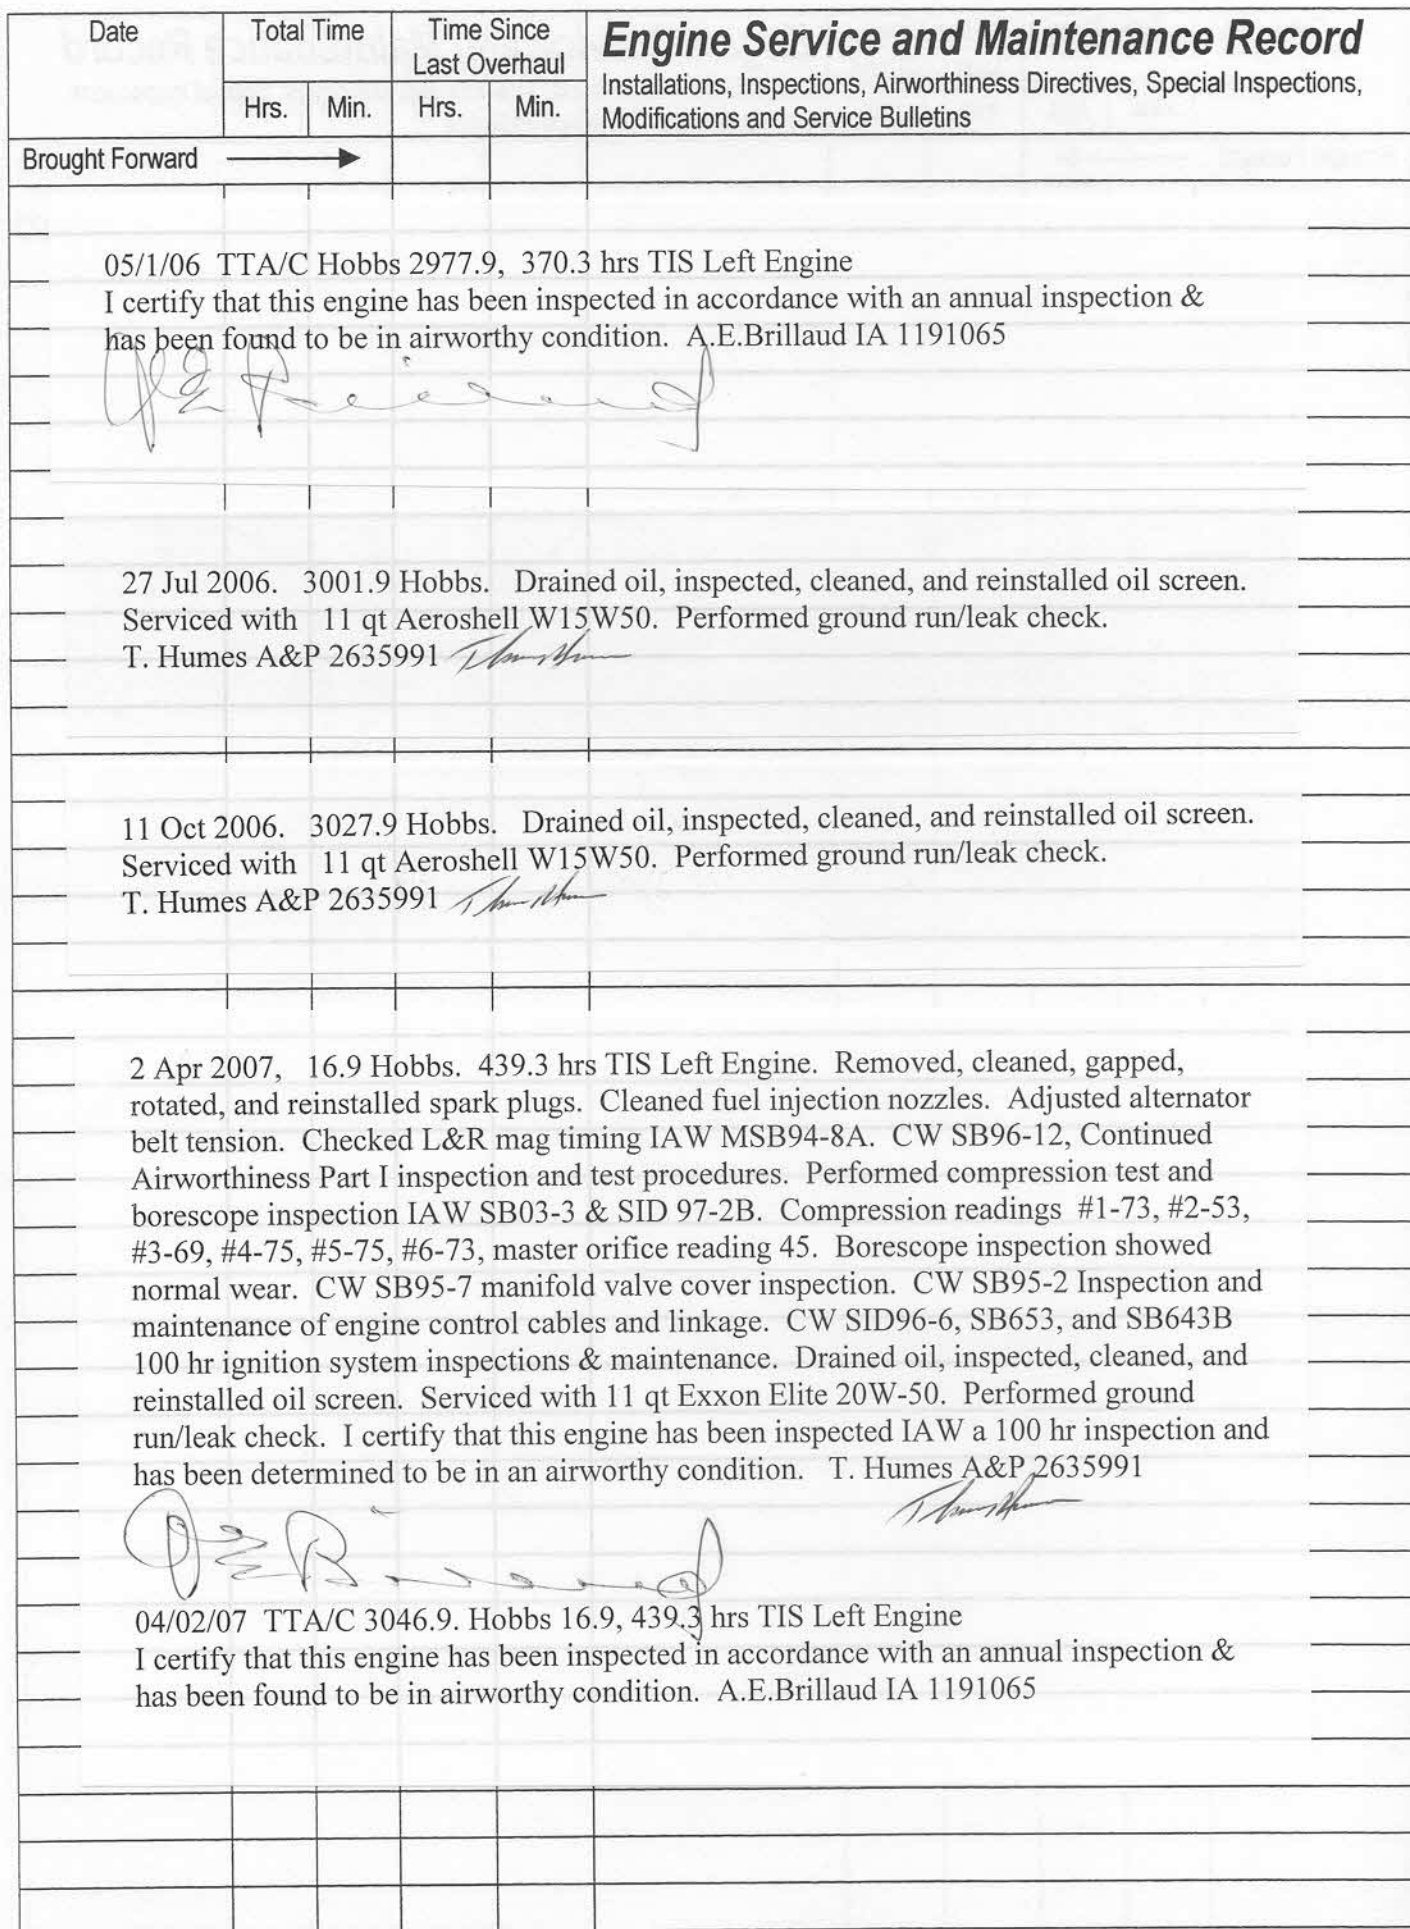 Date
Total Time
Time Since
Last Overhaul
Engine Service and Maintenance Record
Installations, Inspections, Airworthiness Directives, Special Inspections,
Modifications and Service Bulletins
Hrs. Min. Hrs. Min.
Brought Forward
05/1/06 TTA/C Hobbs 2977.9, 370.3 hrs TIS Left Engine
I certify that this engine has been inspected in accordance with an annual inspection &
has been found to be in airworthy condition. A.E.Brillaud IA 1191065
27 Jul 2006. 3001.9 Hobbs. Drained oil, inspected, cleaned, and reinstalled oil screen.
Serviced with 11 qt Aeroshell W15W50. Performed ground run/leak check.
T. Humes A&P 2635991
11 Oct 2006. 3027.9 Hobbs. Drained oil, inspected, cleaned, and reinstalled oil screen.
Serviced with 11 qt Aeroshell W15W50. Performed ground run/leak check.
T. Humes A&P 2635991
2 Apr 2007, 16.9 Hobbs. 439.3 hrs TIS Left Engine. Removed, cleaned, gapped,
rotated, and reinstalled spark plugs. Cleaned fuel injection nozzles. Adjusted alternator
belt tension. Checked L&R mag timing IAW MSB94-8A. CW SB96-12, Continued
Airworthiness Part I inspection and test procedures. Performed compression test and
borescope inspection IAW SB03-3 & SID 97-2B. Compression readings #1-73, #2-53,
#3-69, #4-75, #5-75, #6-73, master orifice reading 45. Borescope inspection showed
normal wear. CW SB95-7 manifold valve cover inspection. CW SB95-2 Inspection and
maintenance of engine control cables and linkage. CW SID96-6, SB653, and SB643B
100 hr ignition system inspections & maintenance. Drained oil, inspected, cleaned, and
reinstalled oil screen. Serviced with 11 qt Exxon Elite 20W-50. Performed ground
run/leak check. I certify that this engine has been inspected IAW a 100 hr inspection and
has been determined to be in an airworthy condition. T. Humes A&P 2635991
04/02/07 TTA/C 3046.9. Hobbs 16.9, 439.3 hrs TIS Left Engine
I certify that this engine has been inspected in accordance with an annual inspection &
has been found to be in airworthy condition. A.E.Brillaud IA 1191065